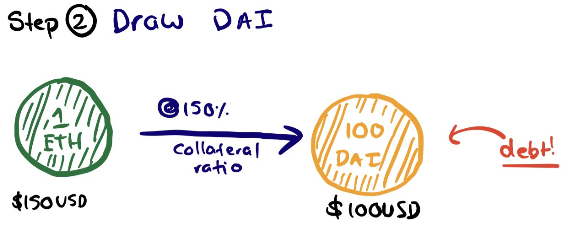 Step ② Draw DAI
1
ETH
$150USD
@150%
Collateral
ratio
100
DAI
$100USD
debt!